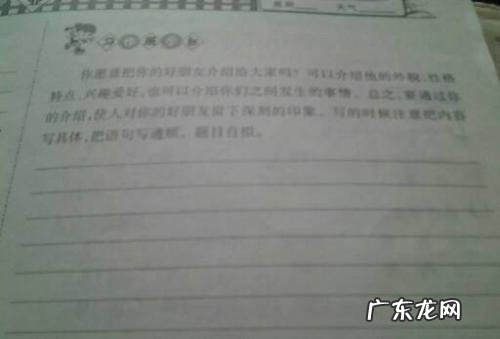 星期 天气
你愿意把你的好朋友介绍给大家吗？可以介绍他的外貌、性格
特点、兴趣爱好，也可以介绍你们之间发生的事情。总之，要通过你
的介绍，使人对你的好朋友留下深刻的印象。写的时候注意把内容
写具体，把语句写通顺。题目自拟。
广东龙网